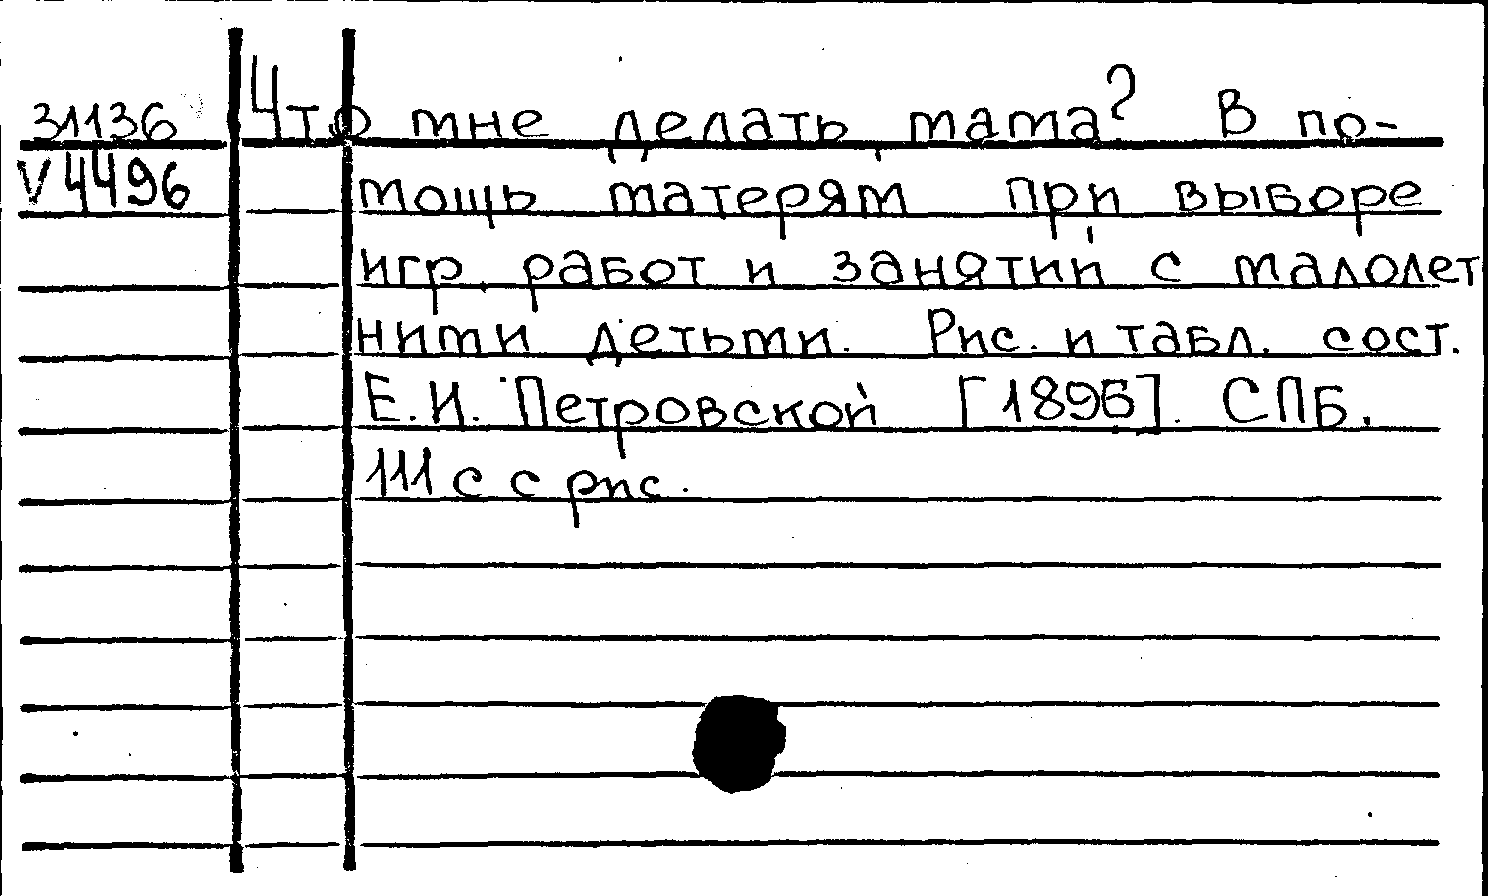 31136 Что мне делать, мама? В по-
V 4496 мощь матерям при выборе
игр, работ и занятий с малолет
ними детьми. Рис. и табл. сост.
Е.И. Петровской [1896]. СПБ.
111 с с рис.